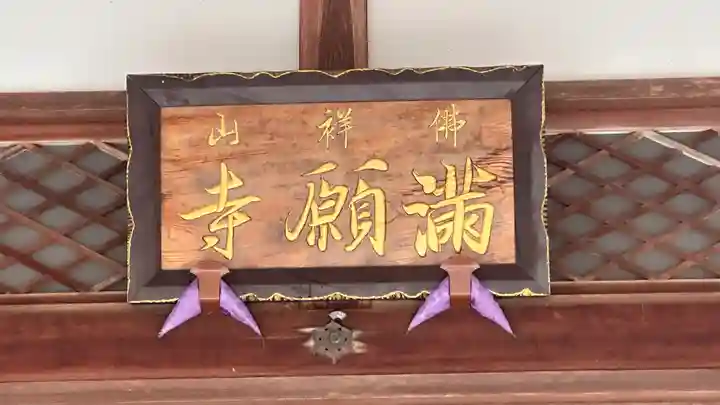 佛祥山
満願寺